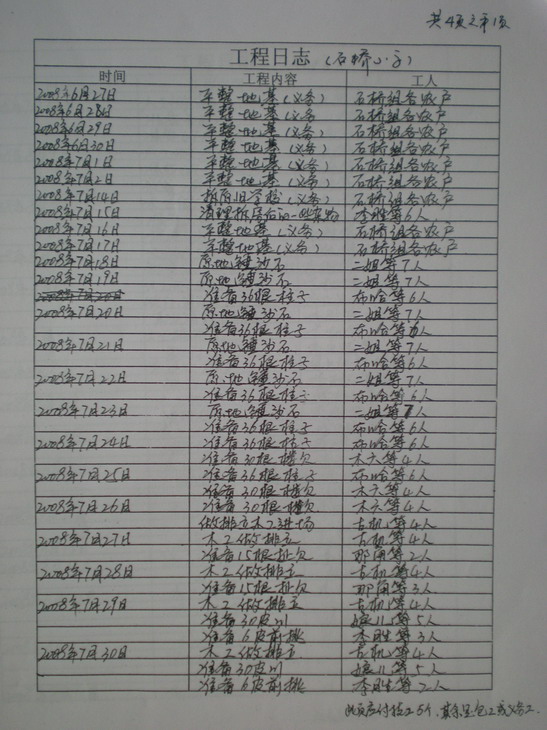 共4页之第1页
工程日志（石桥小学）
时间 工程内容 工人
2008年6月27日 平整地基（义务） 石桥组各农户
2008年6月28日 平整地基（义务） 石桥组各农户
2008年6月29日 平整地基（义务） 石桥组各农户
2008年6月30日 平整地基（义务） 石桥组各农户
2008年7月1日 平整地基（义务） 石桥组各农户
2008年7月2日 平整地基（义务） 石桥组各农户
2008年7月14日 拆原旧学校（义务） 石桥组各农户
2008年7月15日 清理拆房后的一些 李胜等6人
2008年7月16日 平整地基（义务） 石桥组各农户
2008年7月17日 平整地基（义务） 石桥组各农户
2008年7月18日 原地锤沙石 二姐等7人
2008年7月19日 原地锤沙石 二姐等7人
准备36根柱子 布哈等6人
2008年7月20日 原地锤沙石 二姐等7人
准备36根柱子 布哈等6人
2008年7月21日 原地锤沙石 二姐等7人
准备36根柱子 布哈等6人
2008年7月22日 原地锤沙石 二姐等7人
准备36根柱子 布哈等6人
2008年7月23日 原地锤沙石 二姐等7人
准备36根柱子 布哈等6人
2008年7月24日 准备36根柱子 布哈等6人
准备30根楼欠 木六等4人
2008年7月25日 准备36根柱子 布哈等6人
准备30根楼欠 木六等4人
2008年7月26日 准备30根楼欠 木六等4人
做排立木工进场 等4人
2008年7月27日 木工做排立 等4人
准备15根扯欠 等2人
2008年7月28日 木工做排立 等4人
准备15根扯欠 等3人
2008年7月29日 木工做排立 等4人
准备30皮川 等5人
准备6皮前挑 李胜等3人
2008年7月30日 木工做排立 等4人
准备30皮川 等5人
准备6皮前挑 李胜等2人